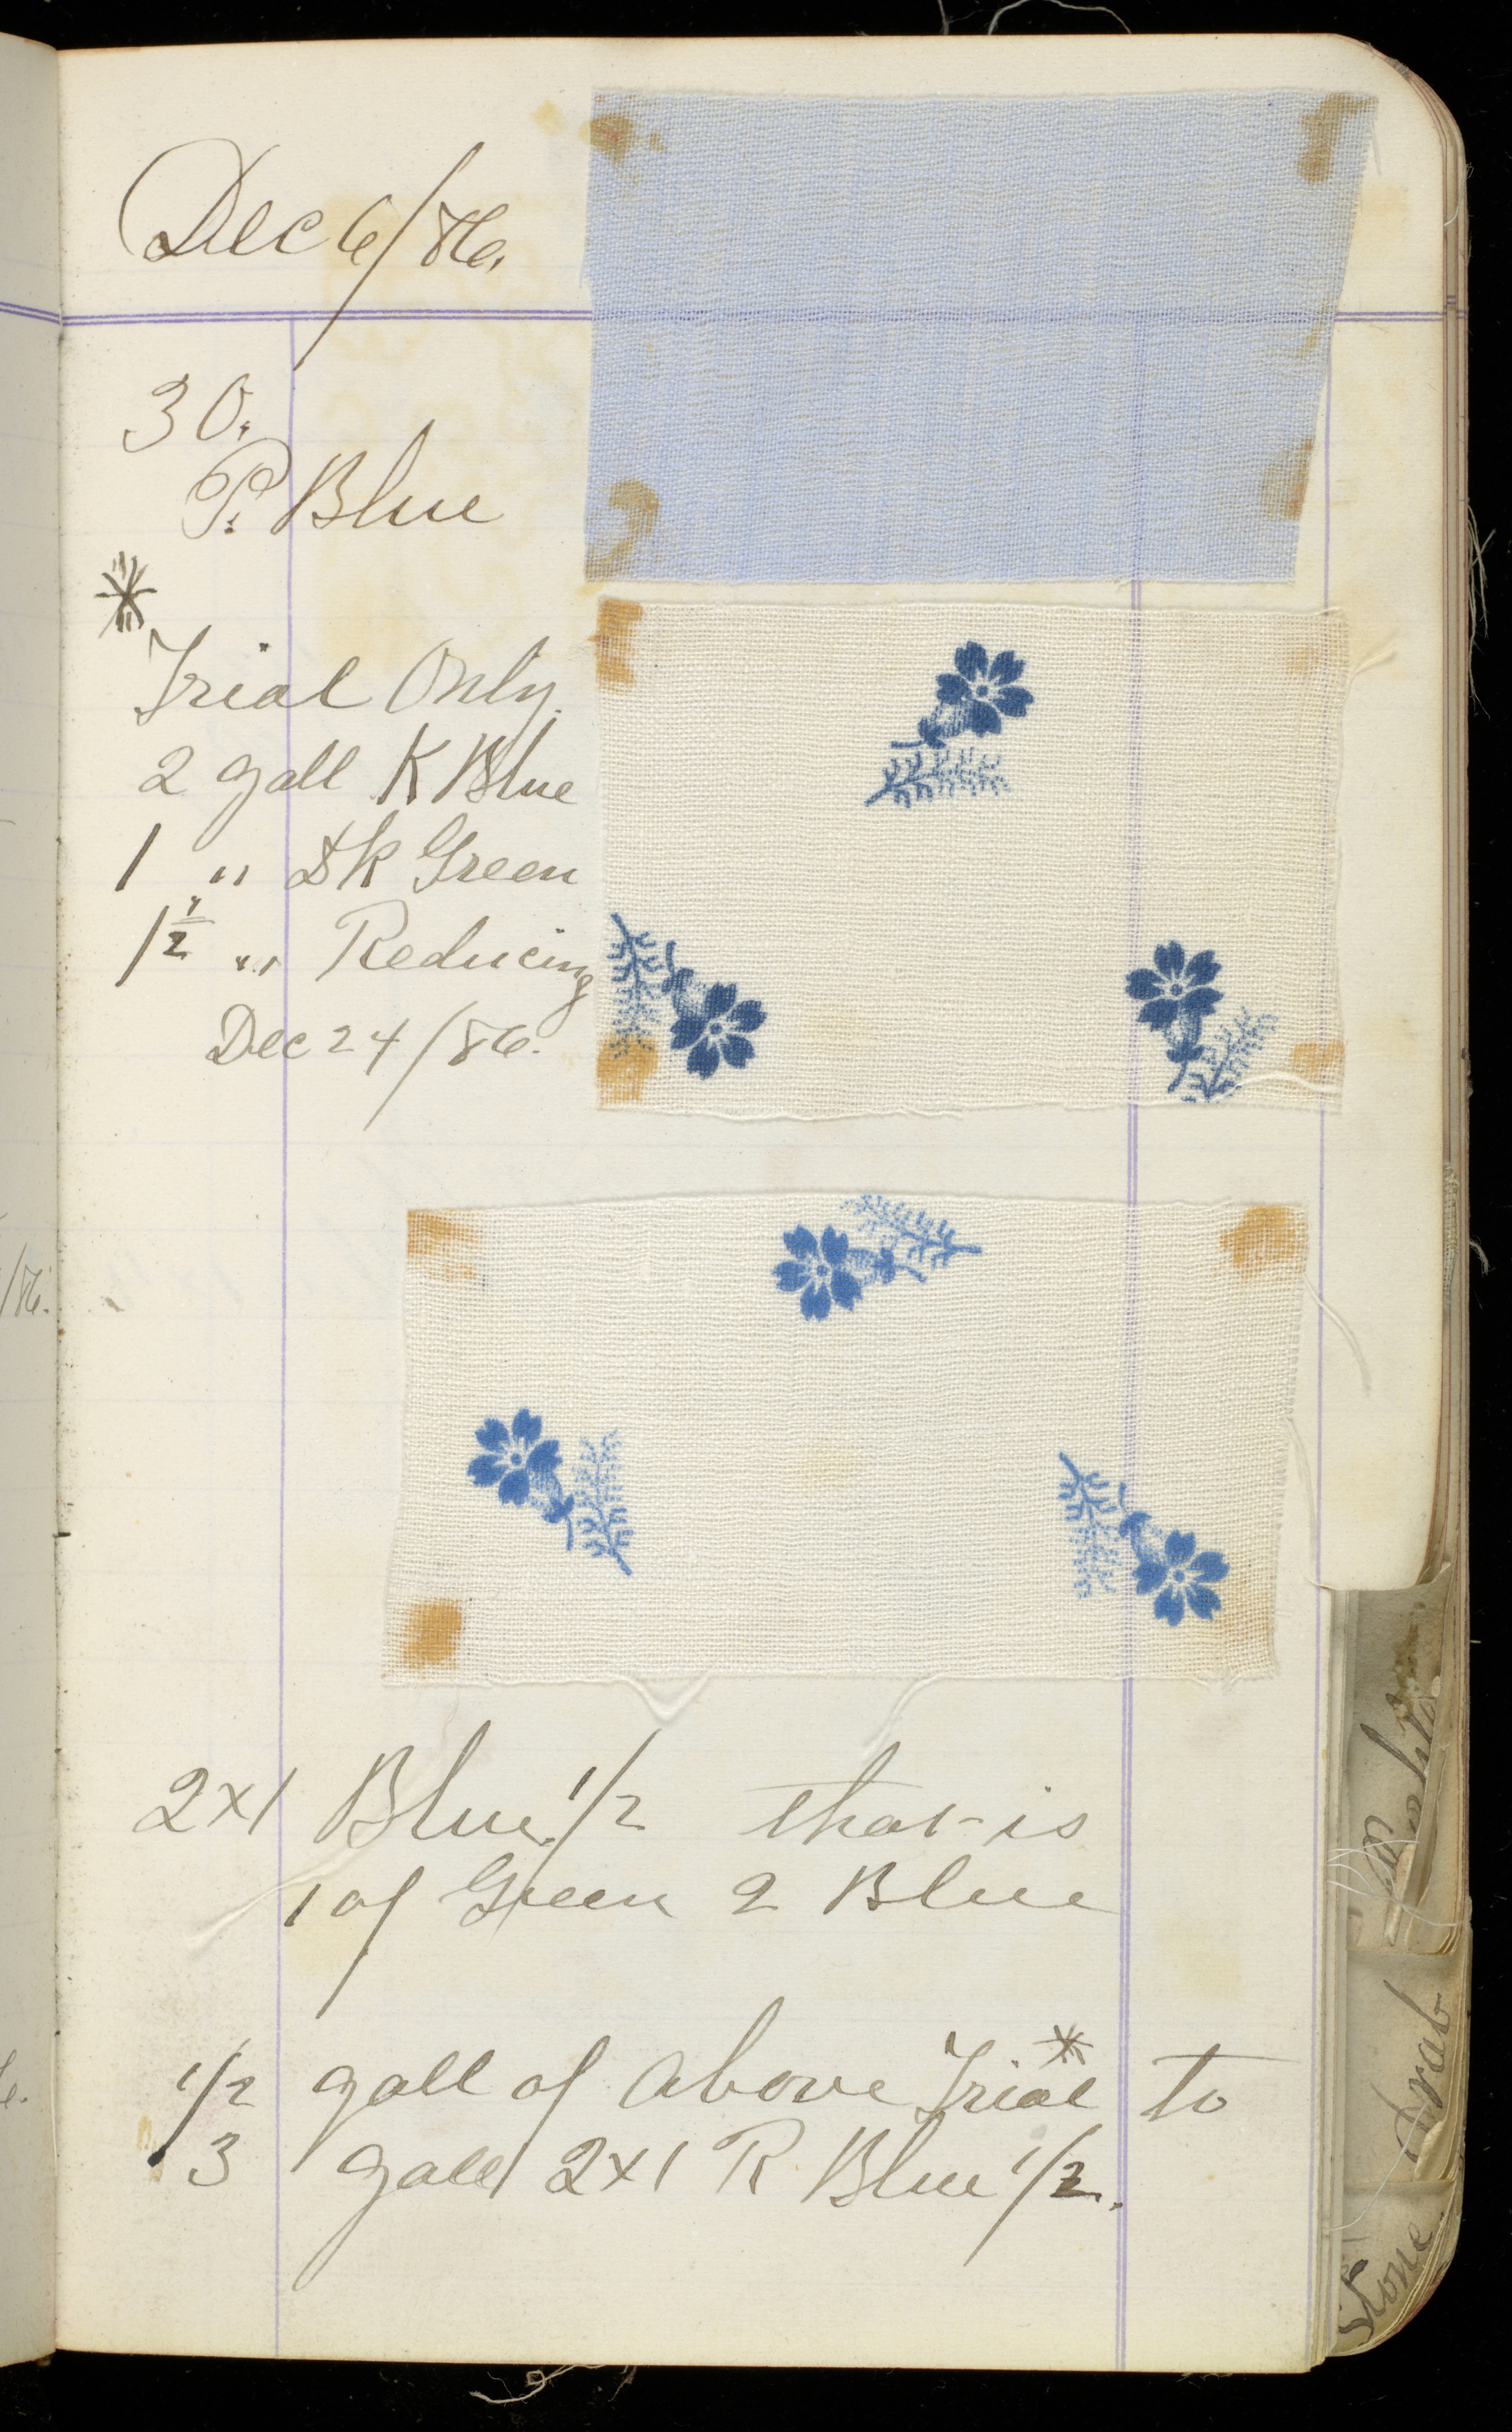 Dec 6/86.
30.
P. Blue
*
Trial Only.
2 gall K Blue
1 " Dk Green
1 1/2 " Reducing
Dec 24/86.
2x1 Blue 1/2 that is
1 of Green 2 Blue
1/2 gall of above Trial * to
3 gall 2x1 R Blue 1/2.
/86.
Drab
Stone